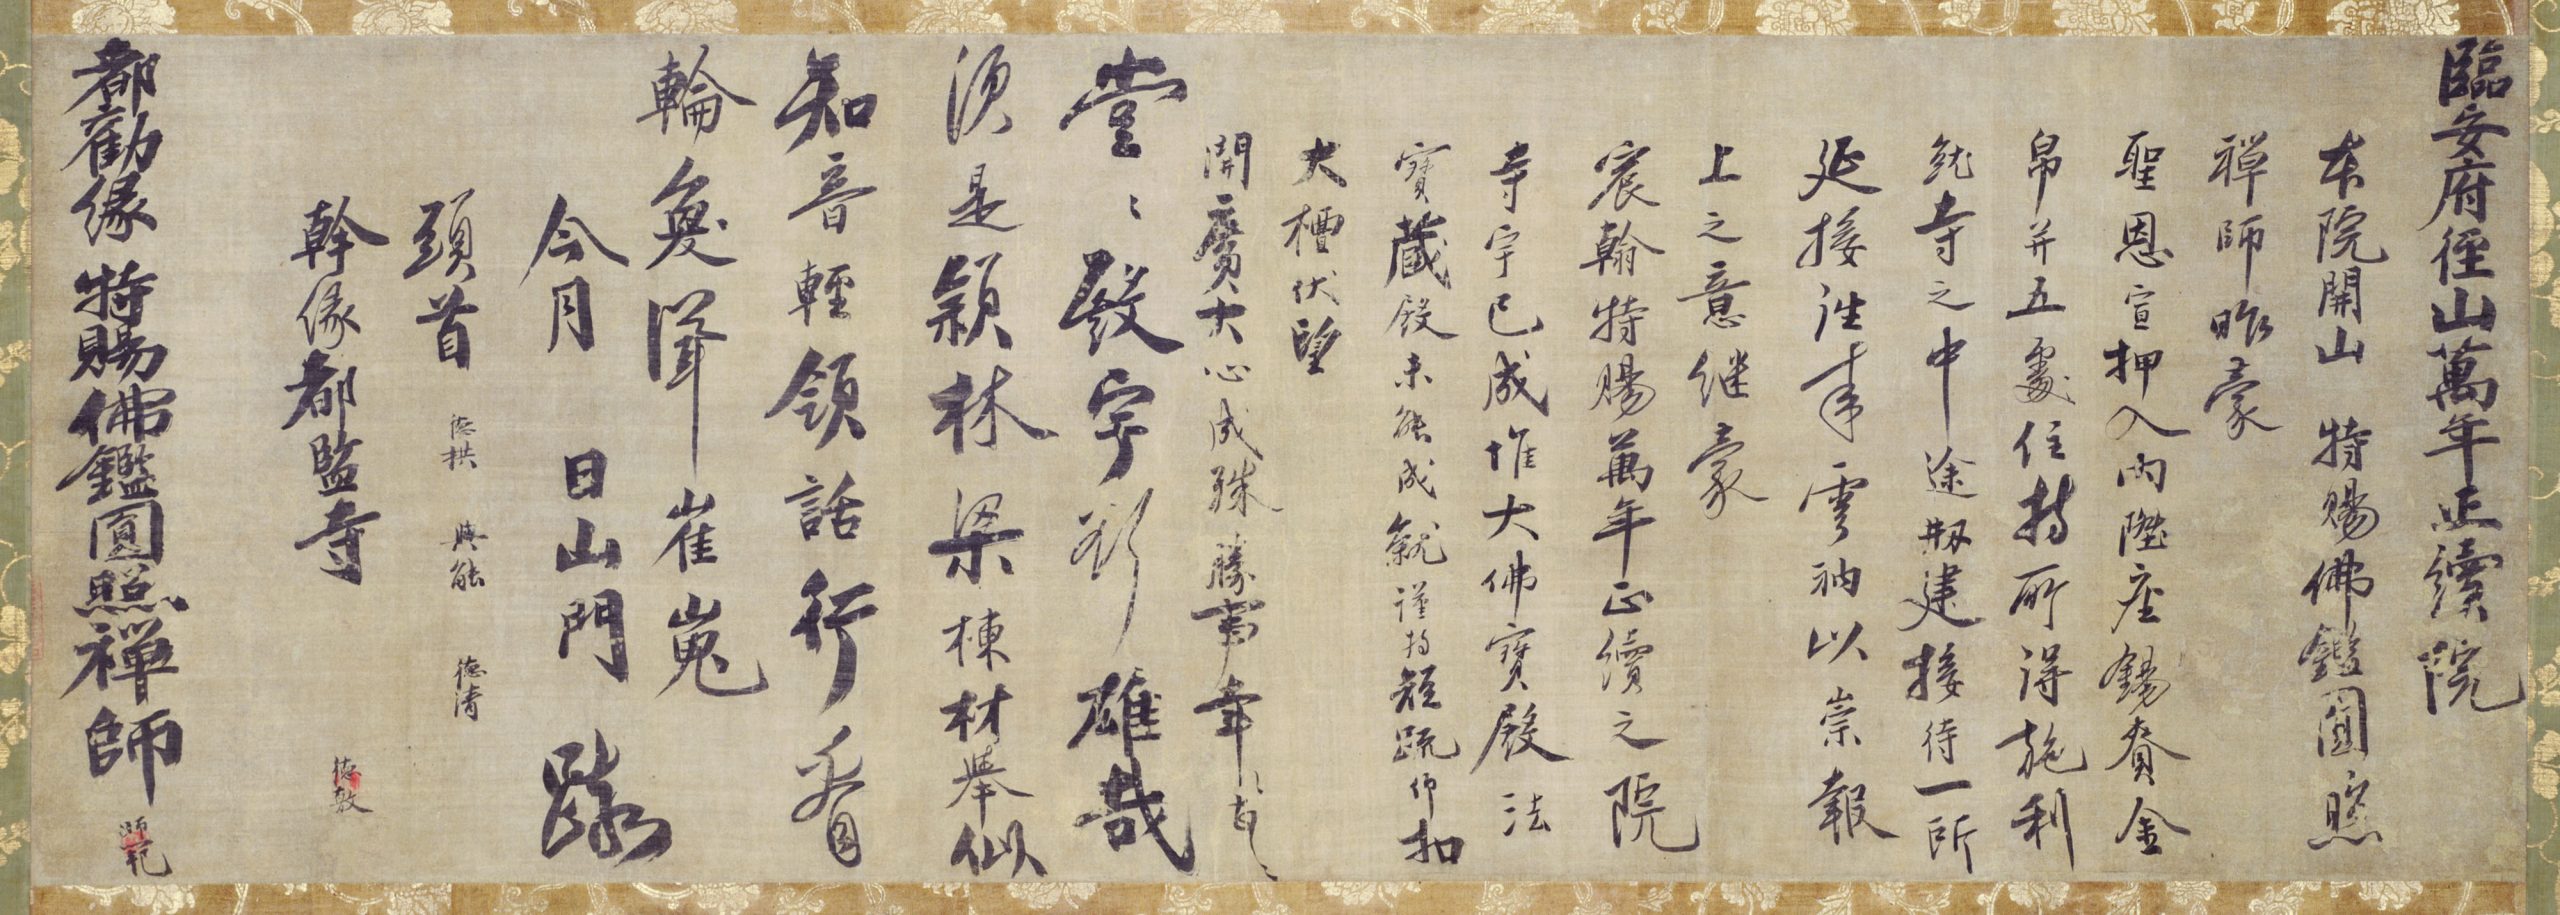 臨安府徑山萬年正續院
本院開山　特賜佛鑑圓照
禪師昨蒙
聖恩宣押入內陞座錫賚金
帛并五處住持所得施利
就寺之中途剏建接待一所
延接往來雲衲以崇報
上之意継蒙
宸翰特賜萬年正續之院
寺宇已成惟大佛寶殿法
寶藏殿未能成就謹持短疏仰扣
大檀伏望
開廣大心成殊勝事幸〻甚〻
堂〻殿宇影雄哉
須是穎林梁棟材舉似
知音輕領話行看
輪奐聳崔嵬
今月　日山門　疏
頭首　德拱　與能　德清
幹緣都監寺　德敷
都勸緣　特賜佛鑑圓照禪師　師範